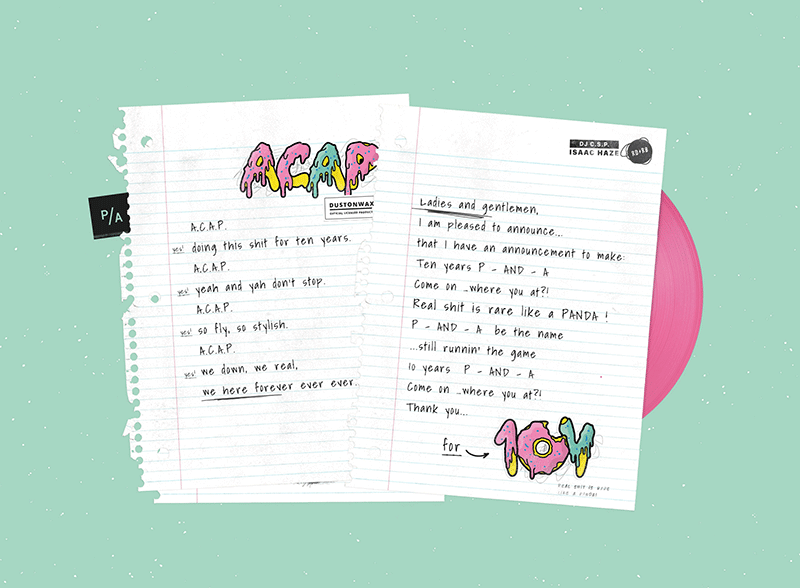 P/A
ACAP
DUSTONWAX
OFFICIAL LICENSED PRODUCT
A.C.A.P.
yes! doing this shit for ten years.
A.C.A.P.
yes! yeah and yah don't stop.
A.C.A.P.
yes! so fly, so stylish.
A.C.A.P.
yes! we down, we real,
we here forever ever ever.
DJ C.S.P.
ISAAC HAZE
Ladies and gentlemen,
I am pleased to announce...
that I have an announcement to make:
Ten years P - AND - A
Come on ...where you at?!
Real shit is rare like a PANDA !
P - AND - A be the name
...still runnin' the game
10 years P - AND - A
Come on ...where you at?!
Thank you...
for
10Y
REAL SHIT IS RARE
LIKE A PANDA!